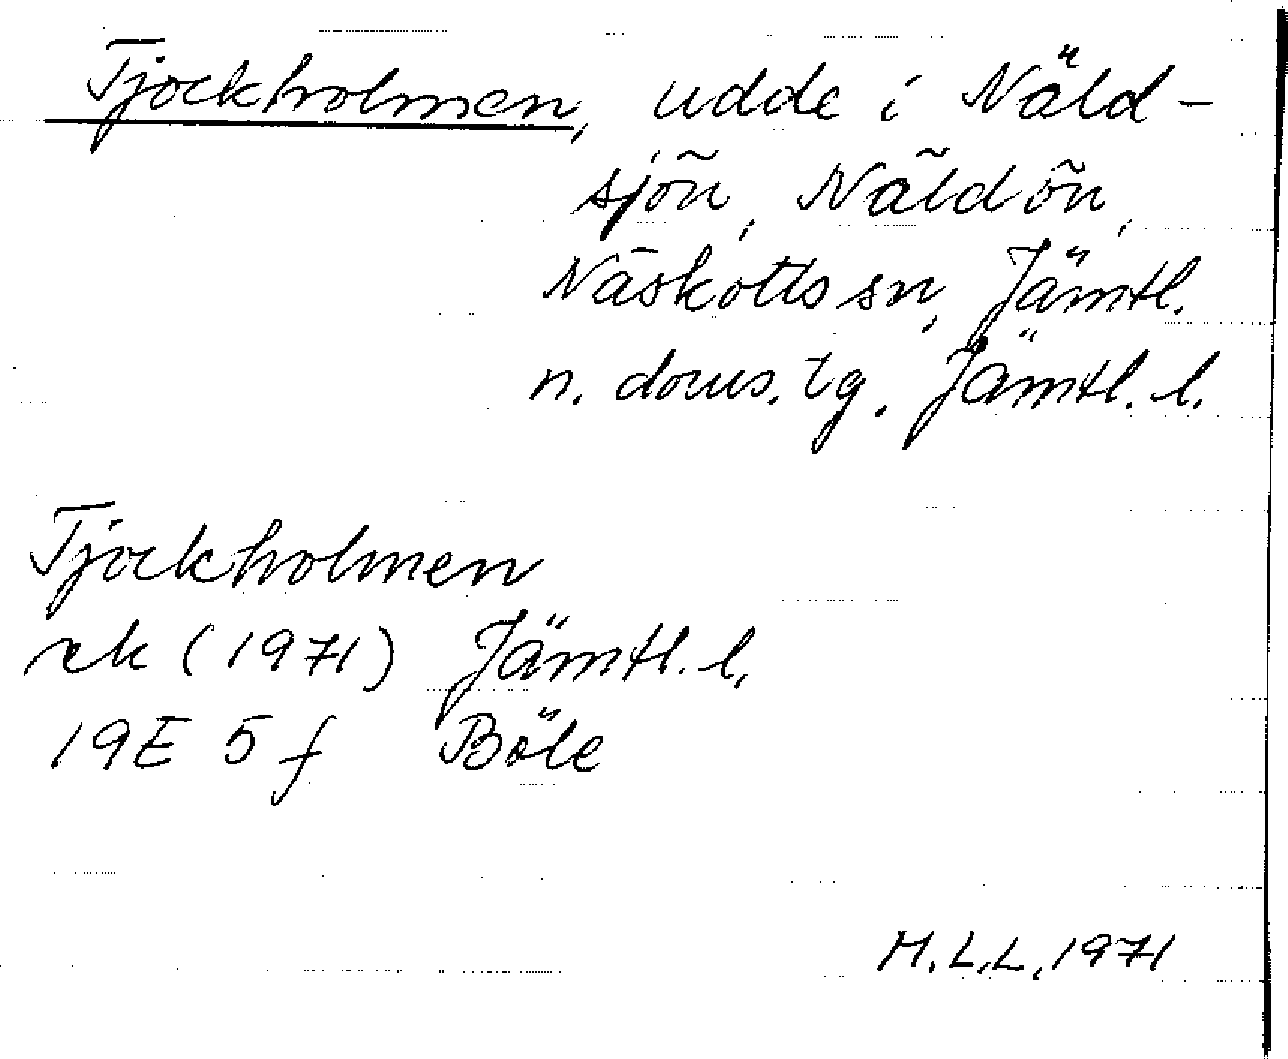 Tjockholmen, udde i Näld-
sjön, Näldön,
Näskotts sn, Jämtl.
n. doms. tg. Jämtl. l.
Tjockholmen
rek (1971) Jämtl. l.
19E 5 f Böle
M.L.L. 1971